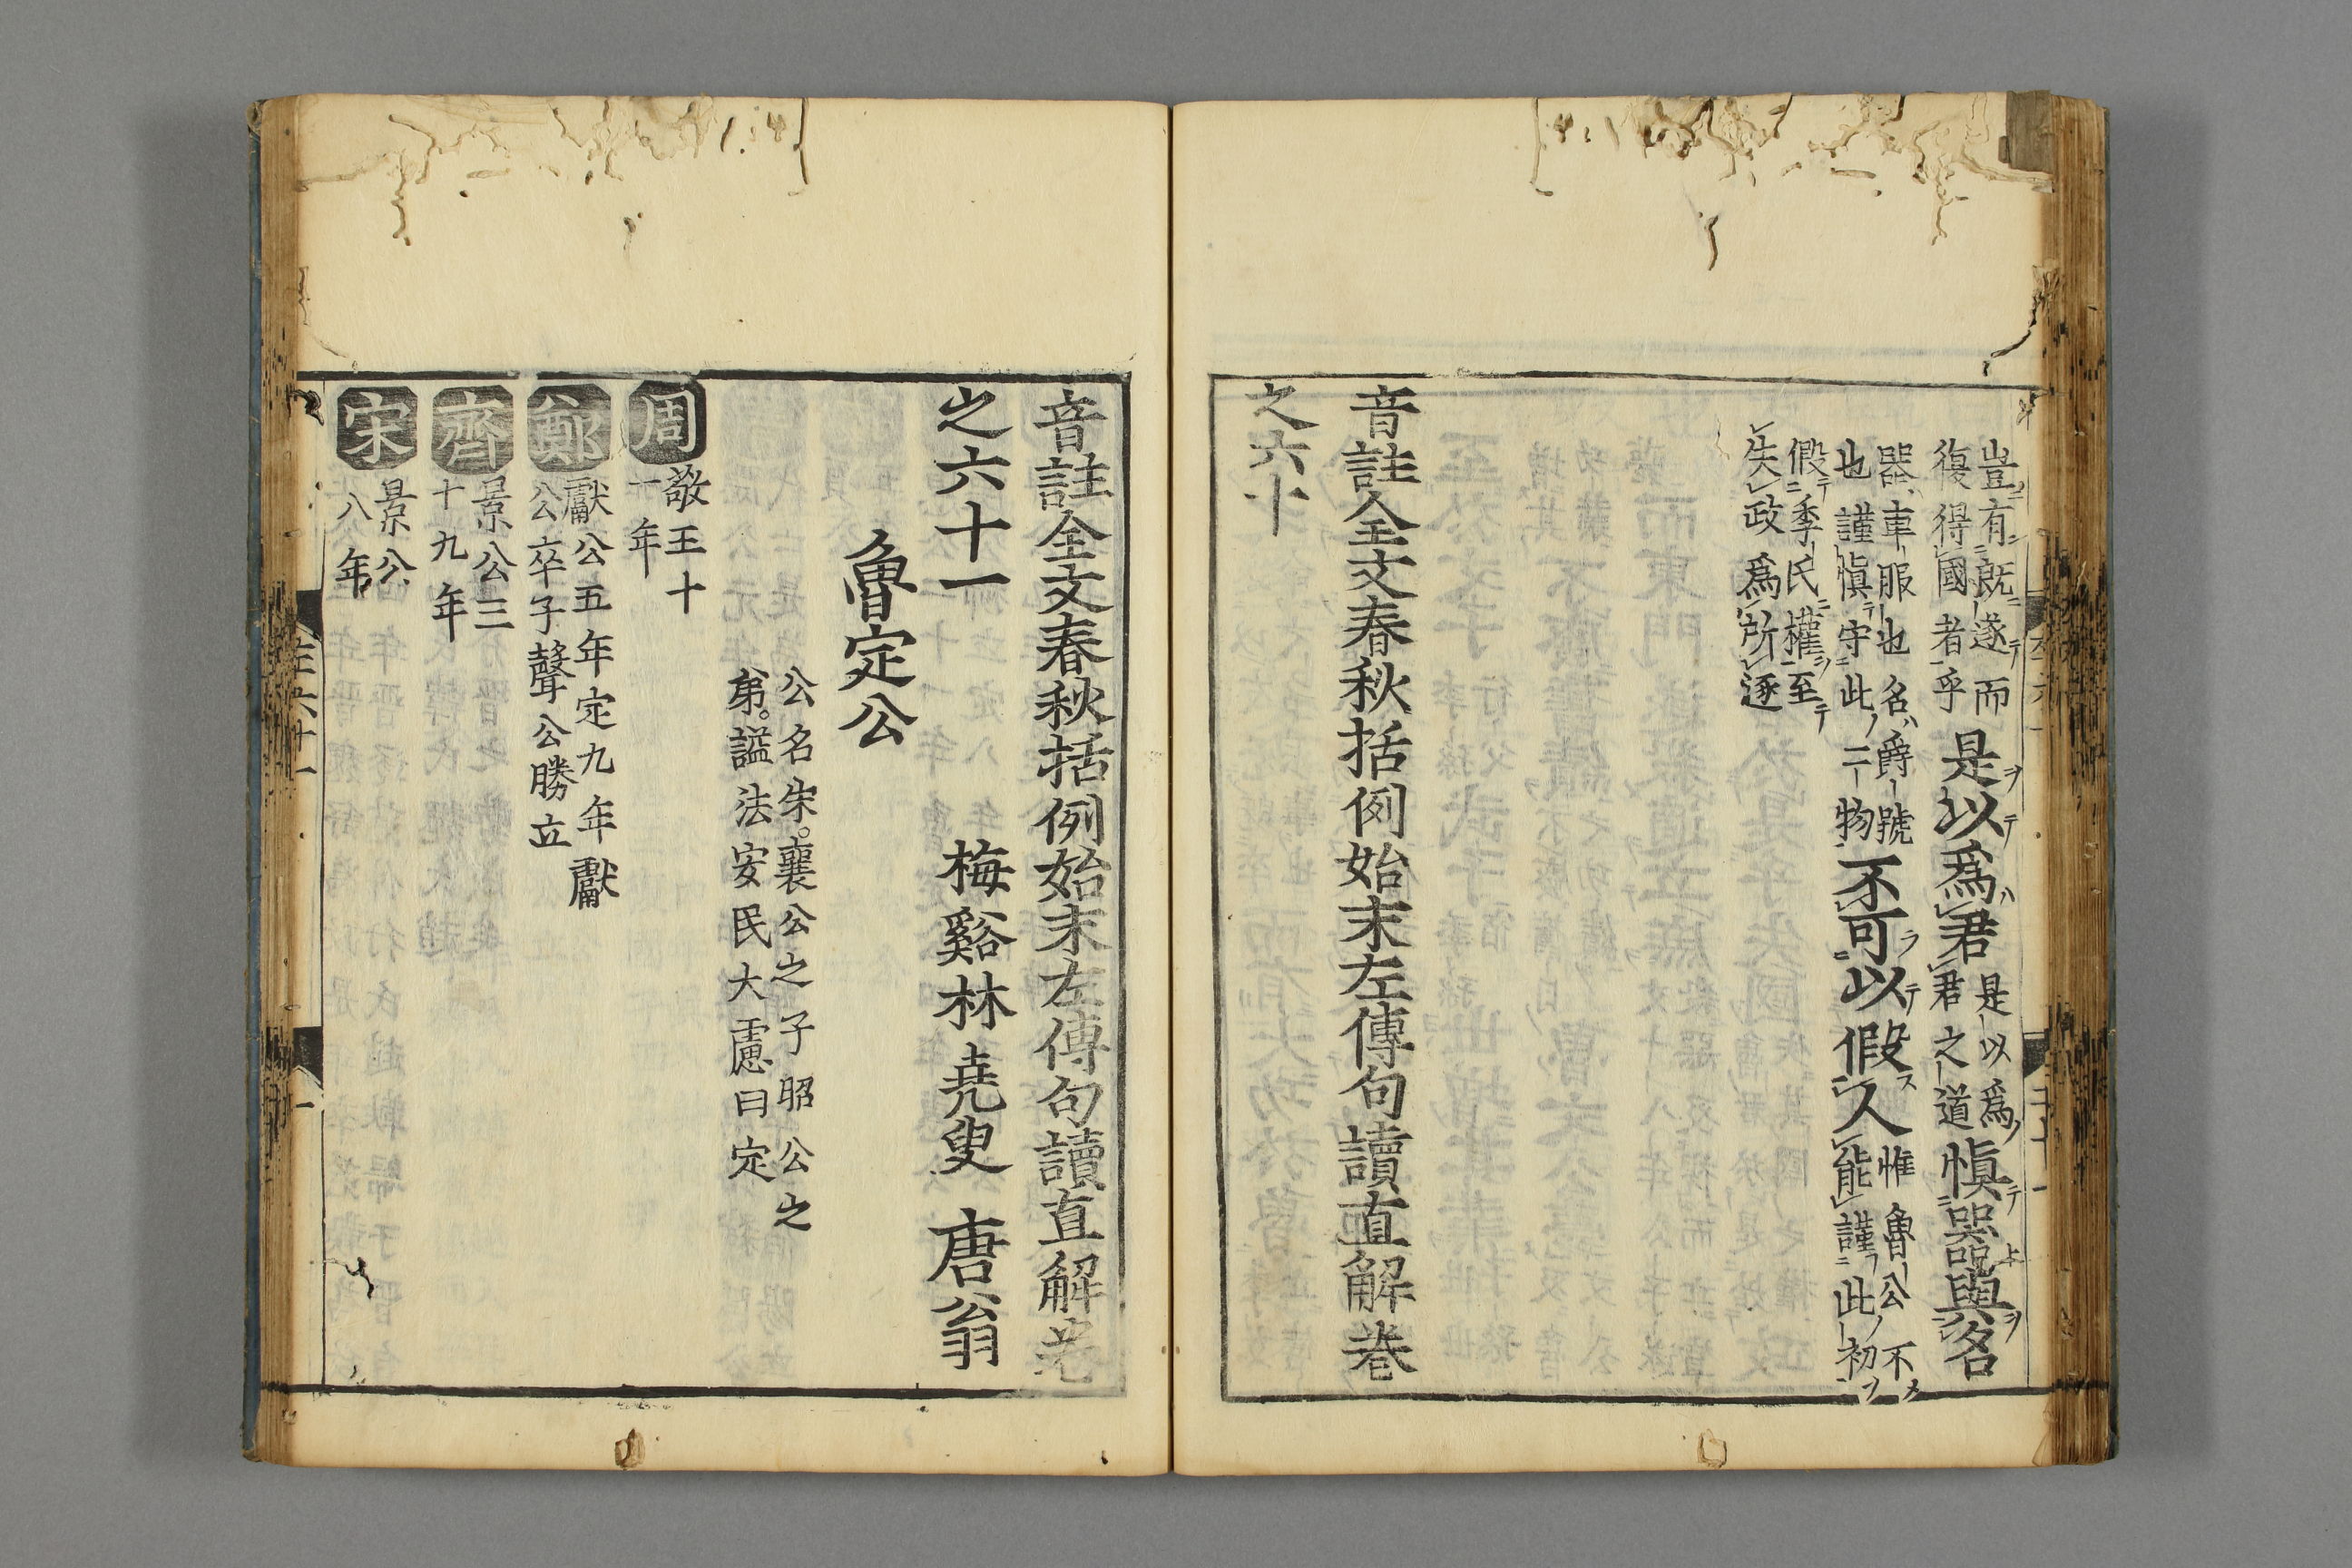 豈有既遂而
復得國者乎
是以爲君
是以爲
君之道
愼器與名
器車服也名爵號
也謹愼守此二物
不可以假人
惟魯公不
能謹此初
假季氏權至
失政爲所逐
音註全文春秋括例始末左傳句讀直解卷
之六十
音註全文春秋括例始末左傳句讀直解卷
之六十一
梅谿林堯叟唐翁
魯定公
公名宋。襄公之子昭公之
弟。謚法安民大慮曰定
周
敬王十
一年
鄭
獻公五年定九年獻
公卒子聲公勝立
齊
景公三
十九年
宋
景公
八年